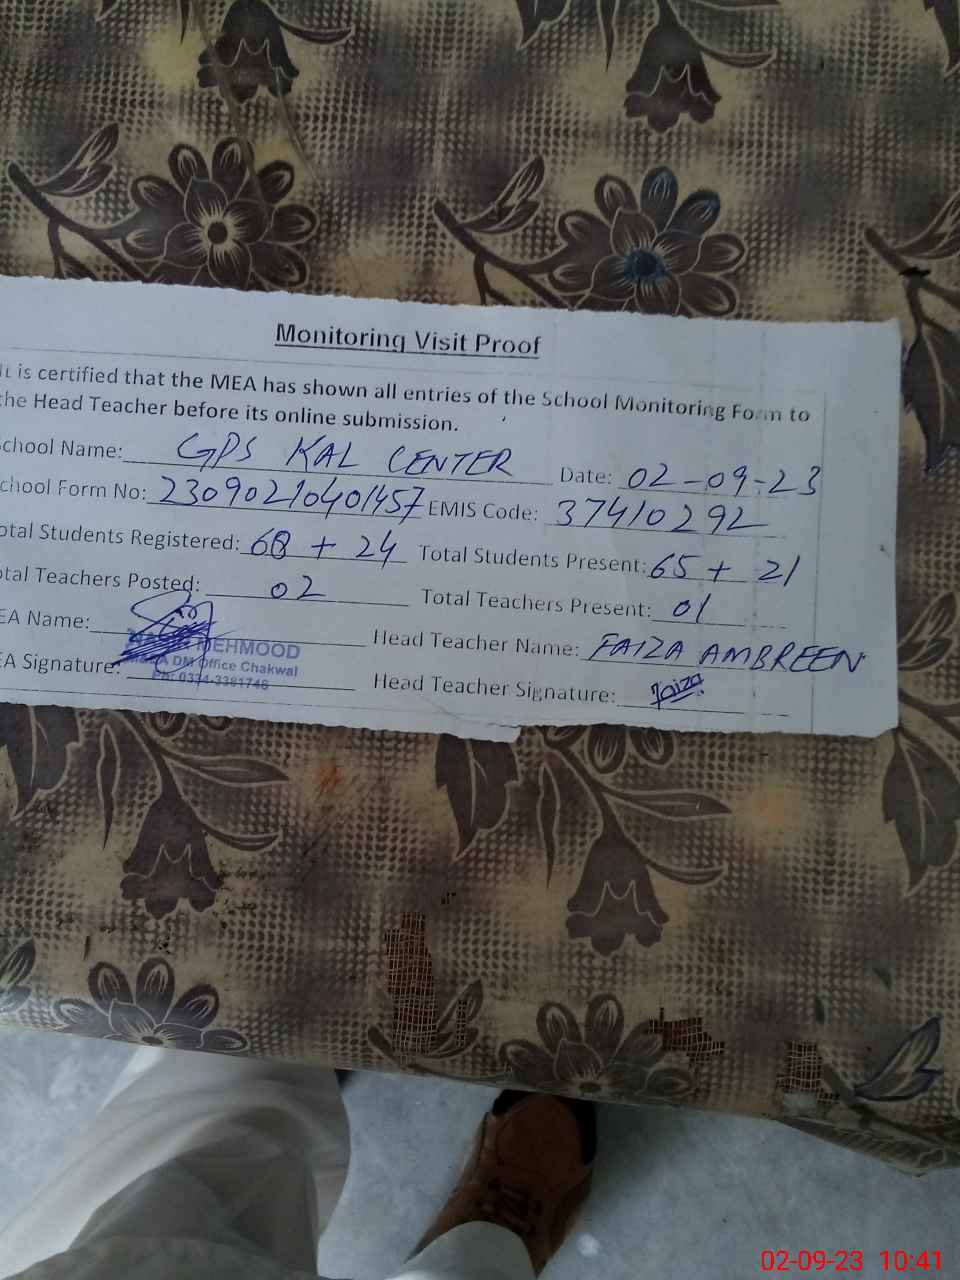 Monitoring Visit Proof
It is certified that the MEA has shown all entries of the School Monitoring Form to
the Head Teacher before its online submission.
School Name: GPS KAL CENTER Date: 02-09-23
School Form No: 2309021040 1457 EMIS Code: 37410292
otal Students Registered: 68 + 24 Total Students Present: 65 + 21
otal Teachers Posted: 02 Total Teachers Present: 01
EA Name: Head Teacher Name: FAIZA AMBREEN
MEHMOOD
DM Office Chakwal
Ph: 0334-3381748
EA Signature: Head Teacher Signature: Faiza
02-09-23 10:41